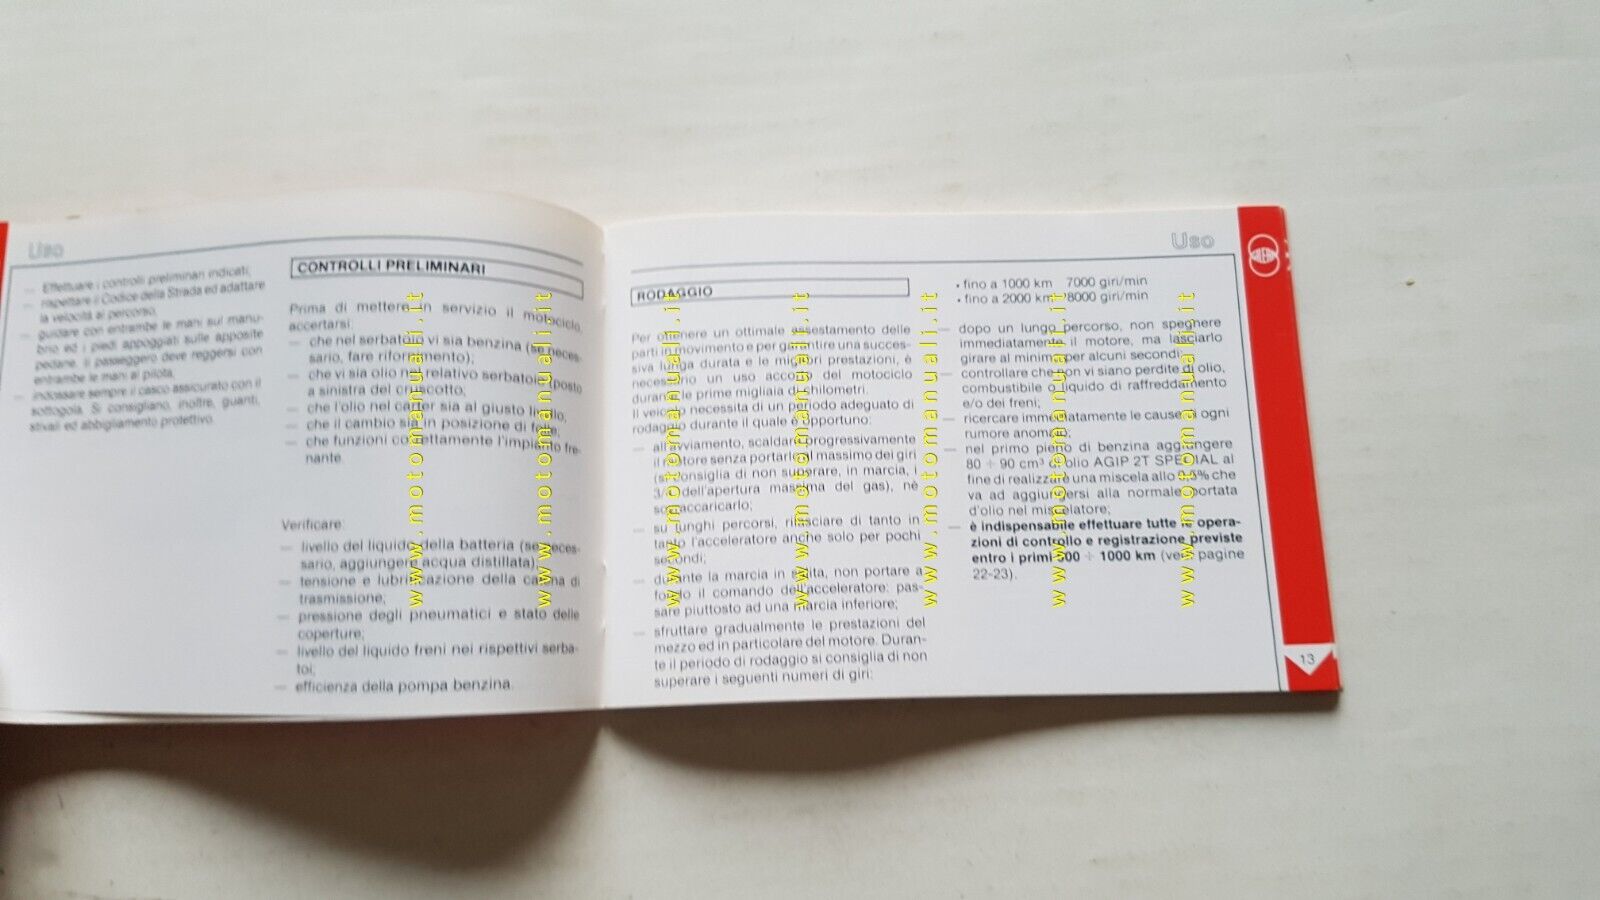 Uso
— Effettuare i controlli preliminari indicati;
— rispettare il Codice della Strada ed adattare
la velocità al percorso;
— guidare con entrambe le mani sul manu-
brio ed i piedi appoggiati sulle apposite
pedane. Il passeggero deve reggersi con
entrambe le mani al pilota;
— indossare sempre il casco assicurato con il
sottogola. Si consigliano, inoltre, guanti,
stivali ed abbigliamento protettivo.
CONTROLLI PRELIMINARI
Prima di mettere in servizio il motociclo,
accertarsi:
— che nel serbatoio vi sia benzina (se neces-
sario, fare rifornimento);
— che vi sia olio nel relativo serbatoio (posto
a sinistra del cruscotto;
— che l'olio nel carter sia al giusto livello;
— che il cambio sia in posizione di folle;
— che funzioni correttamente l'impianto fre-
nante.
Verificare:
— livello del liquido della batteria (se neces-
sario, aggiungere acqua distillata);
— tensione e lubrificazione della catena di
trasmissione;
— pressione degli pneumatici e stato delle
coperture;
— livello del liquido freni nei rispettivi serba-
toi;
— efficienza della pompa benzina.
Uso
RODAGGIO
Per ottenere un ottimale assestamento delle
parti in movimento e per garantire una succes-
siva lunga durata e le migliori prestazioni, è
necessario un uso accorto del motociclo
durante le prime migliaia di chilometri.
Il veicolo necessita di un periodo adeguato di
rodaggio durante il quale è opportuno:
— all'avviamento, scaldare progressivamente
il motore senza portarlo al massimo dei giri
(si consiglia di non superare, in marcia, i
3/4 dell'apertura massima del gas), nè
sovraccaricarlo;
— su lunghi percorsi, rilasciare di tanto in
tanto l'acceleratore anche solo per pochi
secondi;
— durante la marcia in salita, non portare a
fondo il comando dell'acceleratore: pas-
sare piuttosto ad una marcia inferiore;
— sfruttare gradualmente le prestazioni del
mezzo ed in particolare del motore. Duran-
te il periodo di rodaggio si consiglia di non
superare i seguenti numeri di giri:
• fino a 1000 km 7000 giri/min
• fino a 2000 km 8000 giri/min
— dopo un lungo percorso, non spegnere
immediatamente il motore, ma lasciarlo
girare al minimo per alcuni secondi;
— controllare che non vi siano perdite di olio,
combustibile o liquido di raffreddamento
e/o dei freni;
— ricercare immediatamente le cause di ogni
rumore anomalo;
— nel primo pieno di benzina aggiungere
80 ÷ 90 cm³ d'olio AGIP 2T SPECIAL al
fine di realizzare una miscela allo 0,5% che
va ad aggiungersi alla normale portata
d'olio nel miscelatore;
— è indispensabile effettuare tutte le opera-
zioni di controllo e registrazione previste
entro i primi 500 ÷ 1000 km (vedi pagine
22-23).
GILERA
13
www.motomanuali.it
www.motomanuali.it
www.motomanuali.it
www.motomanuali.it
www.motomanuali.it
www.motomanuali.it
www.motomanuali.it